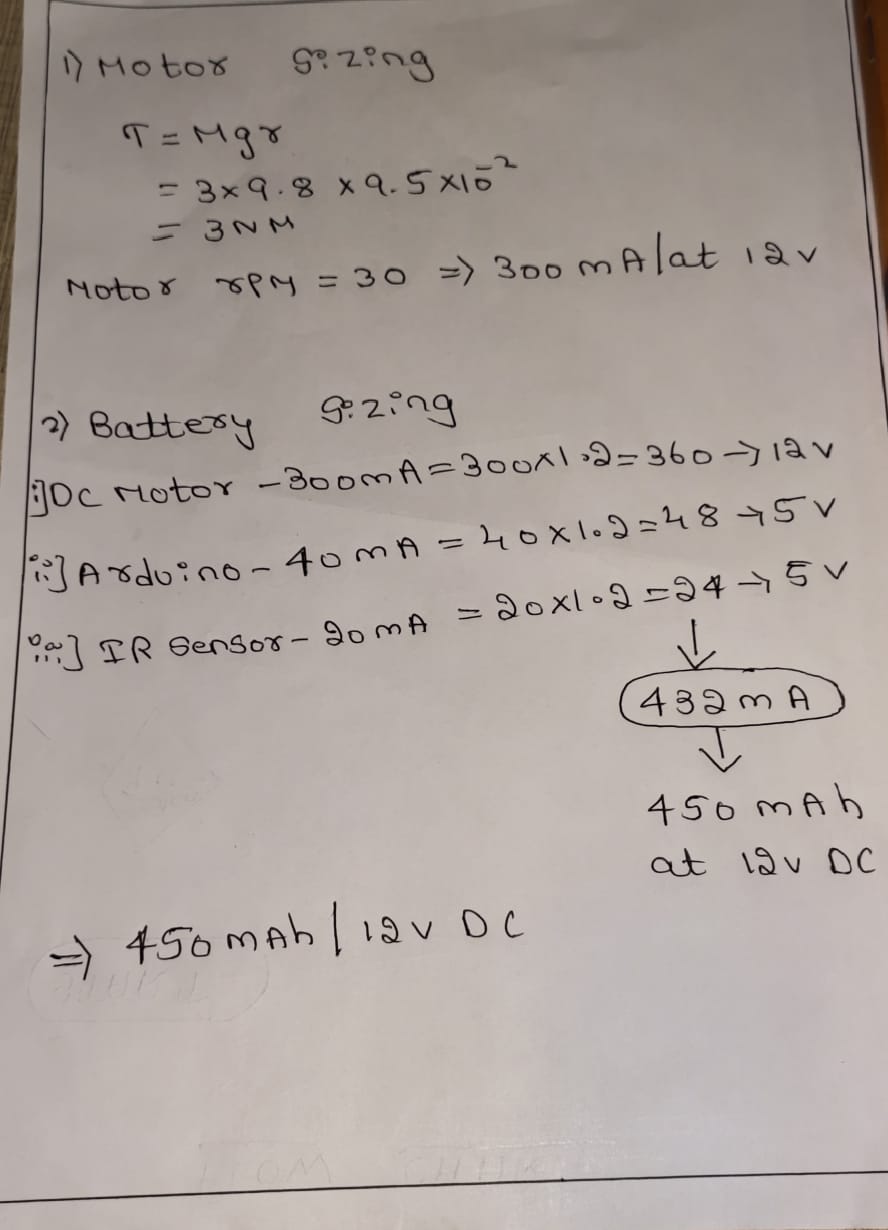 1) Motor Sizing
T = Mgr
= 3 x 9.8 x 9.5 x 10⁻²
= 3 NM
Motor rPM = 30 => 300 mA/at 12v
2) Battery Sizing
i] DC Motor - 300mA = 300x1.2 = 360 → 12v
ii] Arduino - 40 mA = 40x1.2 = 48 → 5v
iii] IR Sensor - 20 mA = 20x1.2 = 24 → 5v
↓
432 mA
↓
450 mAh
at 12v DC
=> 450 mAh / 12v DC